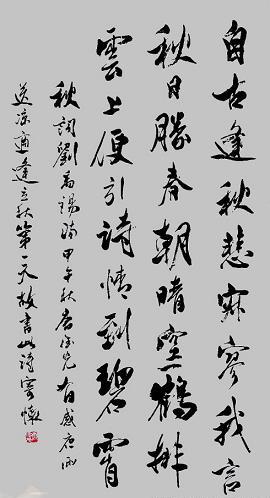 自古逢秋悲寂寥我言
秋日勝春朝晴空鶴排
雲上便引詩情到碧霄
秋詞劉禹錫詩甲午秋唐俊光有感夜雨
送涼適逢立秋第一天故書此詩寄懷